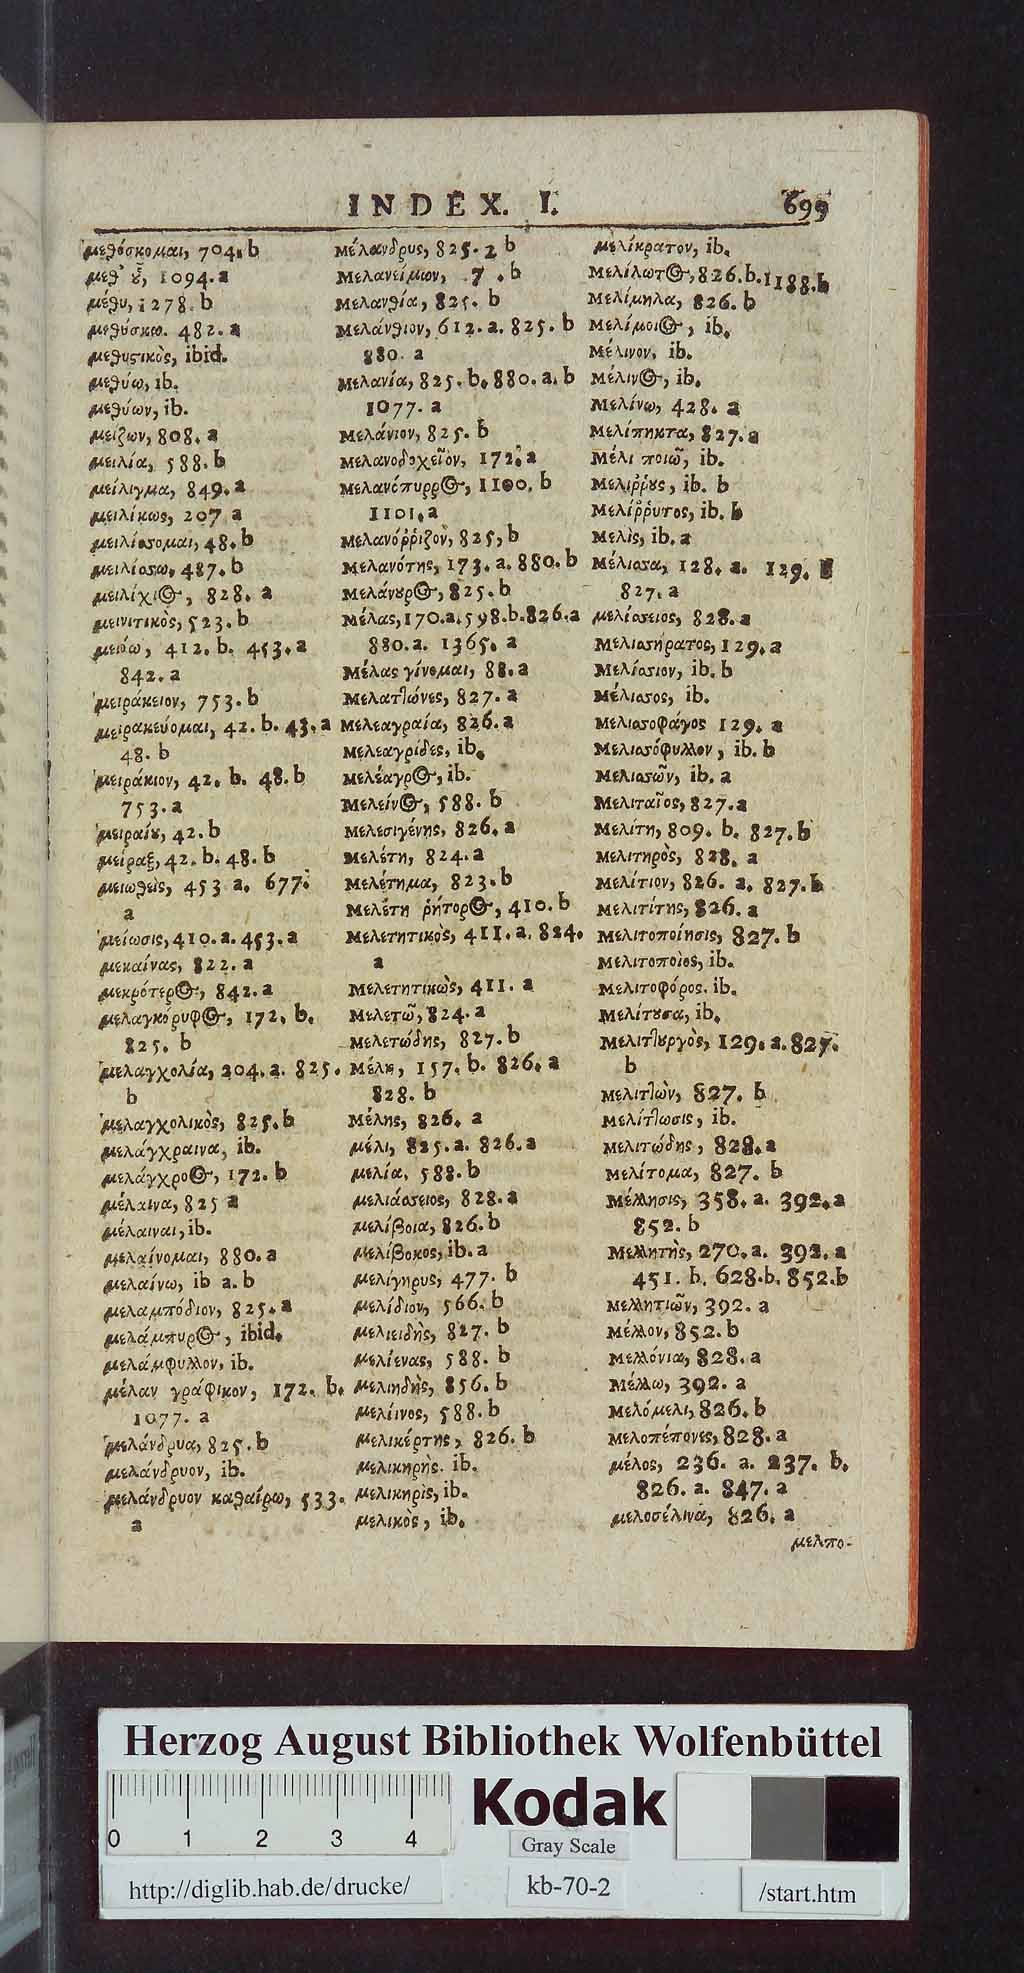 INDEX. I. 699
μεθόσκομαι, 704. b
μεθ' ȣ̃, 1094. a
μέθυ, 1278. b
μεθύσκω. 482. a
μεθυϛικὸς, ibid.
μεθύω, ib.
μεθύων, ib.
μείζων, 808. a
μειλία, 588. b
μείλιγμα, 849. a
μειλίκως, 207 a
μειλίσσομαι, 48. b
μειλίσσω, 487. b
μειλίχι⊙, 828. a
μεινιτικὸς, 523. b
μειόω, 412. b. 453. a
842. a
μειράκειον, 753. b
μειρακεύομαι, 42. b. 43. a
48. b
μειράκιον, 42. b. 48. b
753. a
μειραίȣ, 42. b
μείραξ, 42. b. 48. b
μειωθεὶς, 453 a. 677.
a
μείωσις, 410. a. 453. a
μεκαίνας, 822. a
μεκρότερ⊙, 842. a
μελαγκόρυφ⊙, 172. b.
825. b
μελαγχολία, 204. a. 825.
b
μελαγχολικὸς, 825. b
μελάγχραινα, ib.
μελάγχρο⊙, 172. b
μέλαινα, 825 a
μέλαιναι, ib.
μελαίνομαι, 880. a
μελαίνω, ib a. b
μελαμπόδιον, 825. a
μελάμπυρ⊙, ibid.
μελάμφυλλον, ib.
μέλαν γράφικον, 172. b.
1077. a
μελάνδρυα, 825. b
μελάνδρυον, ib.
μελάνδρυον καθαίρω, 533.
a
μέλανδρυς, 825. 2 b
μελανείμων, 7 . b
μελανθία, 825. b
μελάνθιον, 612. a. 825. b
880. a
μελανία, 825. b. 880. a. b
1077. a
μελάνιον, 825. b
μελανοδοχεῖον, 172. a
μελανόπυρρ⊙, 1100. b
1101. a
μελανόῤῥιζον, 825, b
μελανότης, 173. a. 880. b
μελάνȣρ⊙, 825. b
μέλας, 170. a. 598. b. 826. a
880. a. 1365. a
μέλας γίνομαι, 88. a
μελατΙώνες, 827. a
μελεαγραία, 826. a
μελεαγρίδες, ib.
μελέαγρ⊙, ib.
μελείν⊙, 588. b
μελεσιγένης, 826. a
μελέτη, 824. a
μελέτημα, 823. b
μελέτη ῥήτορ⊙, 410. b
μελετητικὸς, 411. a. 824.
a
μελετητικῶς, 411. a
μελετῶ, 824. a
μελετώδης, 827. b
μέλη, 157. b. 826. a
828. b
μέλης, 826. a
μέλι, 825. a. 826. a
μελία, 588. b
μελιάσειος, 828. a
μελίβοια, 826. b
μελίβοκος, ib. a
μελίγηρυς, 477. b
μελίδιον, 566. b
μελιειδὴς, 827. b
μελίενας, 588. b
μελιηδὴς, 856. b
μελίινος, 588. b
μελικέρτης, 826. b
μελικηρὴς. ib.
μελικηρὶς, ib.
μελικὸς, ib.
μελίκρατον, ib.
μελίλωτ⊙, 826. b. 1188. b
μελίμηλα, 826. b
μελίμοι⊙, ib.
μέλινον, ib.
μέλιν⊙, ib.
μελίνω, 428. a
μελίπηκτα, 827. a
μέλι ποιῶ, ib.
μελιῤῥȣς, ib. b
μελίῤῥυτος, ib. b
μελὶς, ib. a
μέλισσα, 128. a. 129.
827. a
μελίσσειος, 828. a
μελισσήρατος, 129. a
μελίσσιον, ib. b
μέλισσος, ib.
μελισσοφάγος 129. a
μελισσόφυλλον, ib. b
μελισσῶν, ib. a
μελιταῖος, 827. a
μελίτη, 809. b. 827. b
μελιτηρὸς, 828. a
μελίτιον, 826. a. 827. b
μελιτίτης, 826. a
μελιτοποίησις, 827. b
μελιτοποῖος, ib.
μελιτοφόρος. ib.
μελίτȣσα, ib.
μελιτΙȣργὸς, 129. a. 827.
b
μελιτΙῶν, 827. b
μελίτΙωσις, ib.
μελιτώδης, 828. a
μελίτομα, 827. b
μέλλησις, 358. a. 392. a
852. b
μελλητὴς, 270. a. 392. a
451. b. 628. b. 852. b
μελλητιῶν, 392. a
μέλλον, 852. b
μελλόνια, 828. a
μέλλω, 392. a
μελόμελι, 826. b
μελοπέπονες, 828. a
μέλος, 236. a. 237. b.
826. a. 847. a
μελοσέλινα, 826. a
μελπο-
Herzog August Bibliothek Wolfenbüttel
Kodak
0 1 2 3 4
Gray Scale
http://diglib.hab.de/drucke/
kb-70-2
/start.htm